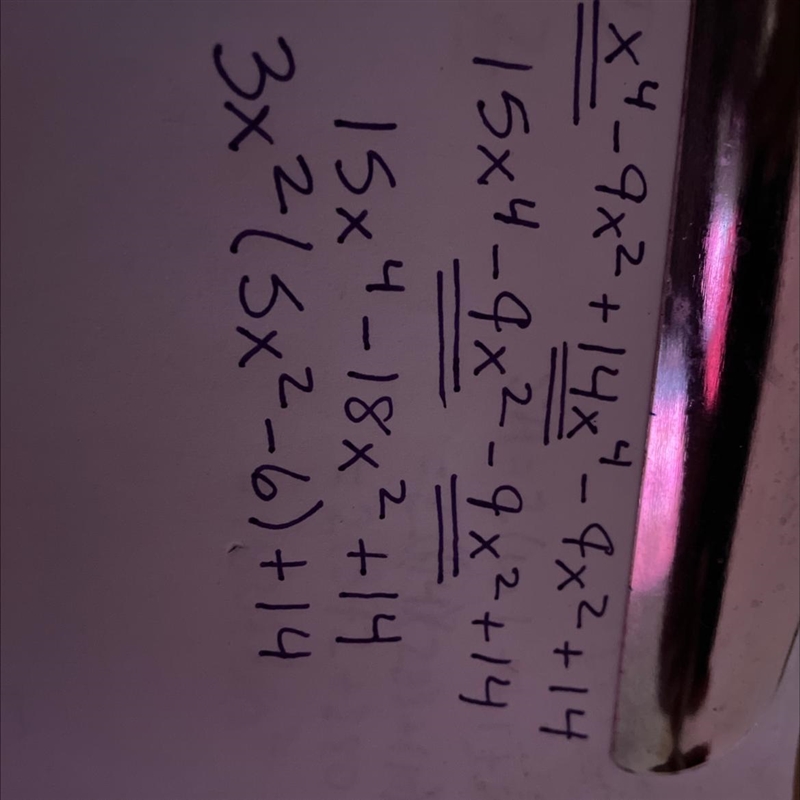 x⁴ - 9x² + 14x⁴ - 9x² + 14
15x⁴ - 9x² - 9x² + 14
15x⁴ - 18x² + 14
3x² (5x² - 6) + 14